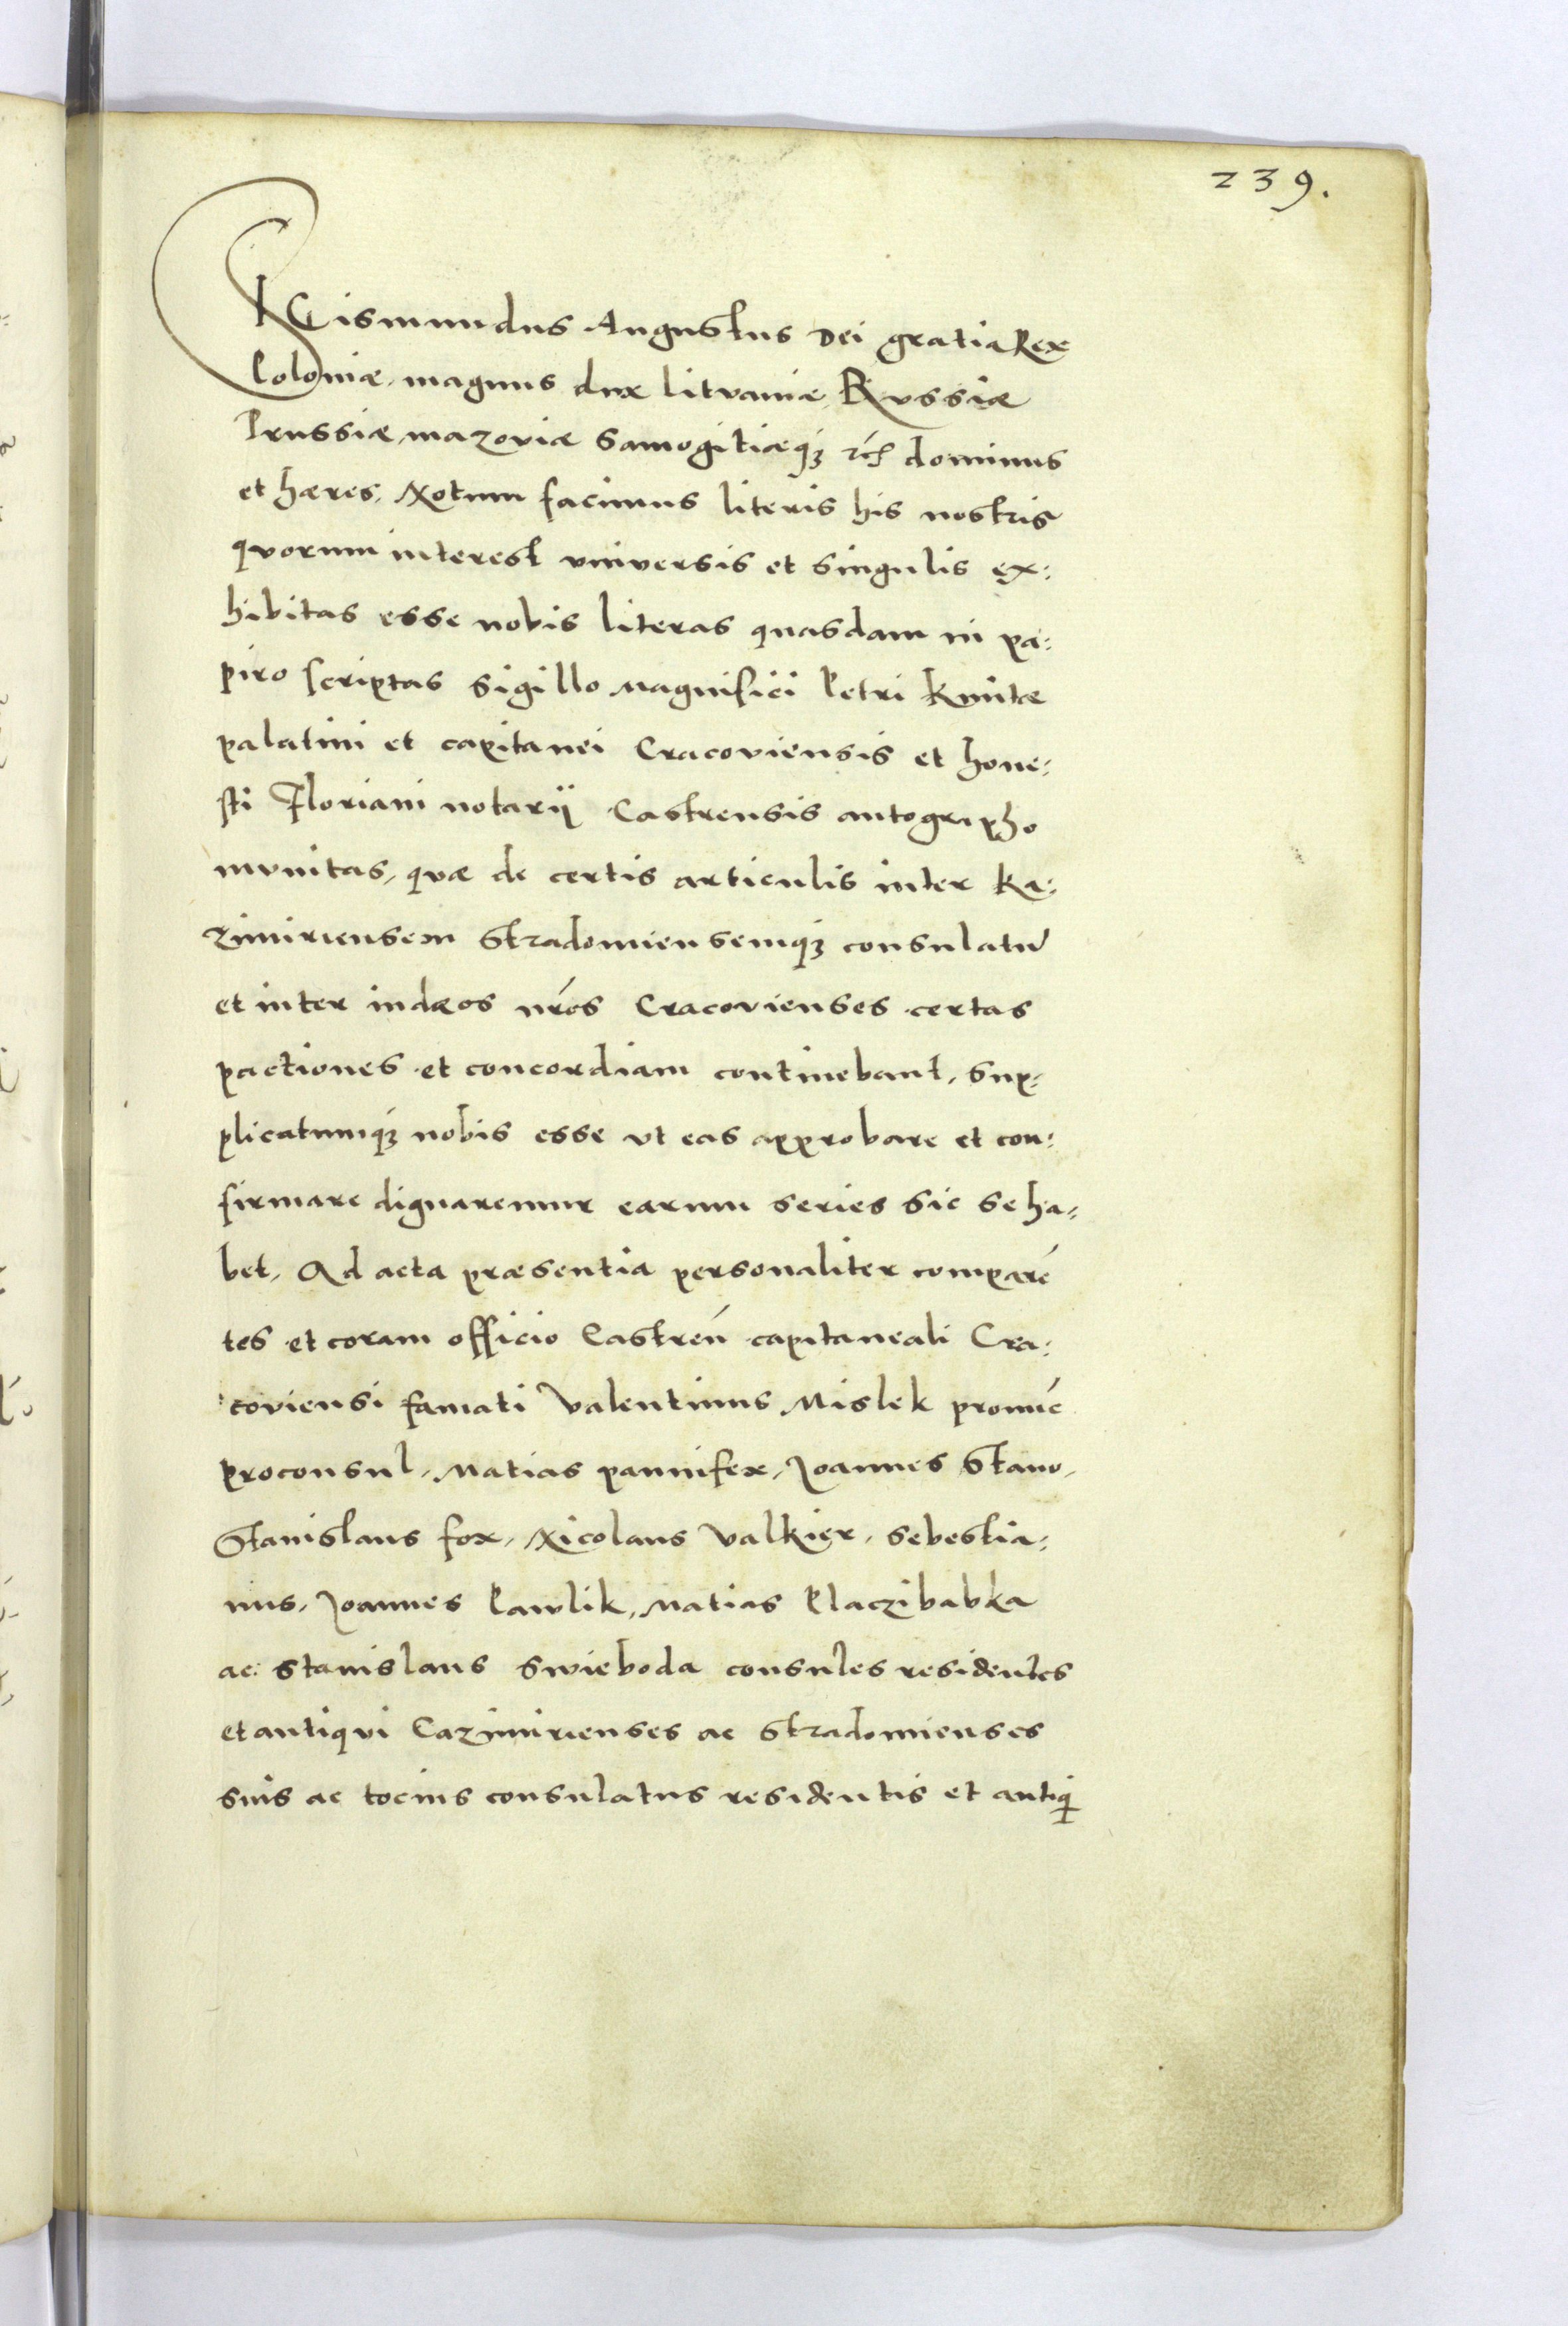 239.
SIGismundus Augustus Dei gratia Rex
Poloniæ, magnus dux litvaniæ, Rvssiæ
Prussiæ, mazoviæ Samogitiæq₃ etc̃ dominus
et hæres, Notum facimus literis his nostris
qvorum interest vniversis et singulis ex:
hibitas esse nobis literas quasdam in pa:
piro scriptas sigillo Magnifici Petri kmitæ
palatini et capitanei Cracoviensis et hone:
sti Floriani notarij Castrensis autographo
mvnitas, qvæ de certis articulis inter ka:
zimiriensem Stradomiensemq₃ consulatū
et inter iudæos nr̃os Cracovienses certas
pactiones et concordiam continebant, sup:
plicatumq₃ nobis esse vt eas approbare et con:
firmare dignaremur earum series sic se ha:
bet, Ad acta præsentia personaliter comparē
tes et coram officio Castreñ capitaneali Cra:
coviensi famati Valentinus Mislek pronūc
proconsul, Matias pannifex, Joannes Stano,
Stanislaus fox, Nicolaus Valkier, Sebestia:
nus, Joannes Pawlik, Matias Placzibabka
ac Stanislaus Swieboda consules residentes
et antiqvi Cazimirienses ac Stradomienses
suis ac tocius consulatus residentis et antiqi